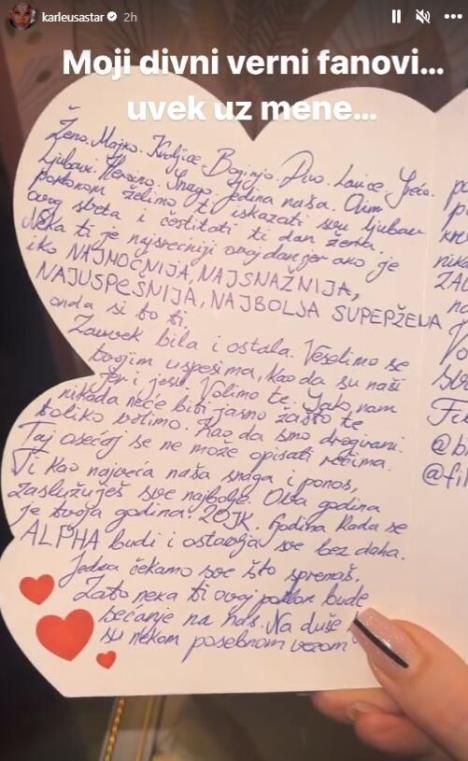 karleusastar 2h
Moji divni verni fanovi...
uvek uz mene...
Ženo. Majko. Kraljice. Boginjo. Divo. Lavice. Srećo.
Ljubavi. Heroino. Snago. Jedina naša. Ovim
poklonom želimo ti iskazati svu ljubav
ovog sveta i čestitati ti dan žena.
Neka ti je najsrećniji ovaj dan jer ako je
iko NAJMOĆNIJA, NAJSNAŽNIJA,
NAJUSPEŠNIJA, NAJBOLJA SUPERŽENA
onda si to ti.
Zauvek bila i ostala. Veselimo se
tvojim uspesima, kao da su naši
jer i jesu. Volimo te. Iako nam
nikada neće biti jasno zašto te
toliko volimo. Kao da smo drogirani.
Taj osećaj se ne može opisati rečima.
Ti kao najveća naša snaga i ponos,
zaslužuješ sve najbolje. Ova godina
je tvoja godina! 20JK. Godina kada se
ALPHA budi i ostavlja sve bez daha.
Jedva čekamo sve što spremaš.
Zato neka ti ovaj poklon bude
sećanje na nas. Na duše
su nekom posebnom vezom
po
pr
nika
ZAU
na
Vo
Fi
@b
@fil